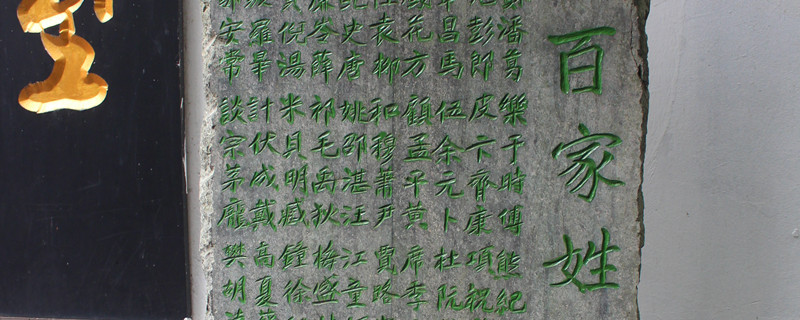 百家姓
潘葛樂于時傅熊紀
彭郎皮卞齊康項祝
昌馬伍余元卜杜阮
花方顧孟平黃席季
袁柳和穆蕭尹賈路
史唐姚邵湛汪江童
岑薛祁毛禹狄梅盛
倪湯米貝明臧鐘徐
羅畢計伏成戴高夏
安常談宋茅龐樊胡